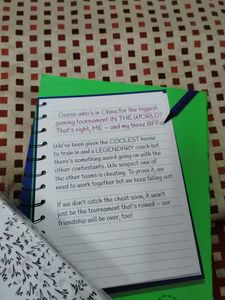 Guess who's in China for the biggest
gaming tournament IN THE WORLD?
That's right, ME – and my three BFFs!
We've been given the COOLEST house
to train in and a LEGENDARY coach but
there's something weird going on with the
other contestants. We suspect one of
the other teams is cheating. To prove it, we
need to work together but we keep falling out!
If we don't catch the cheat soon, it won't
just be the tournament that's ruined – our
friendship will be over, too!